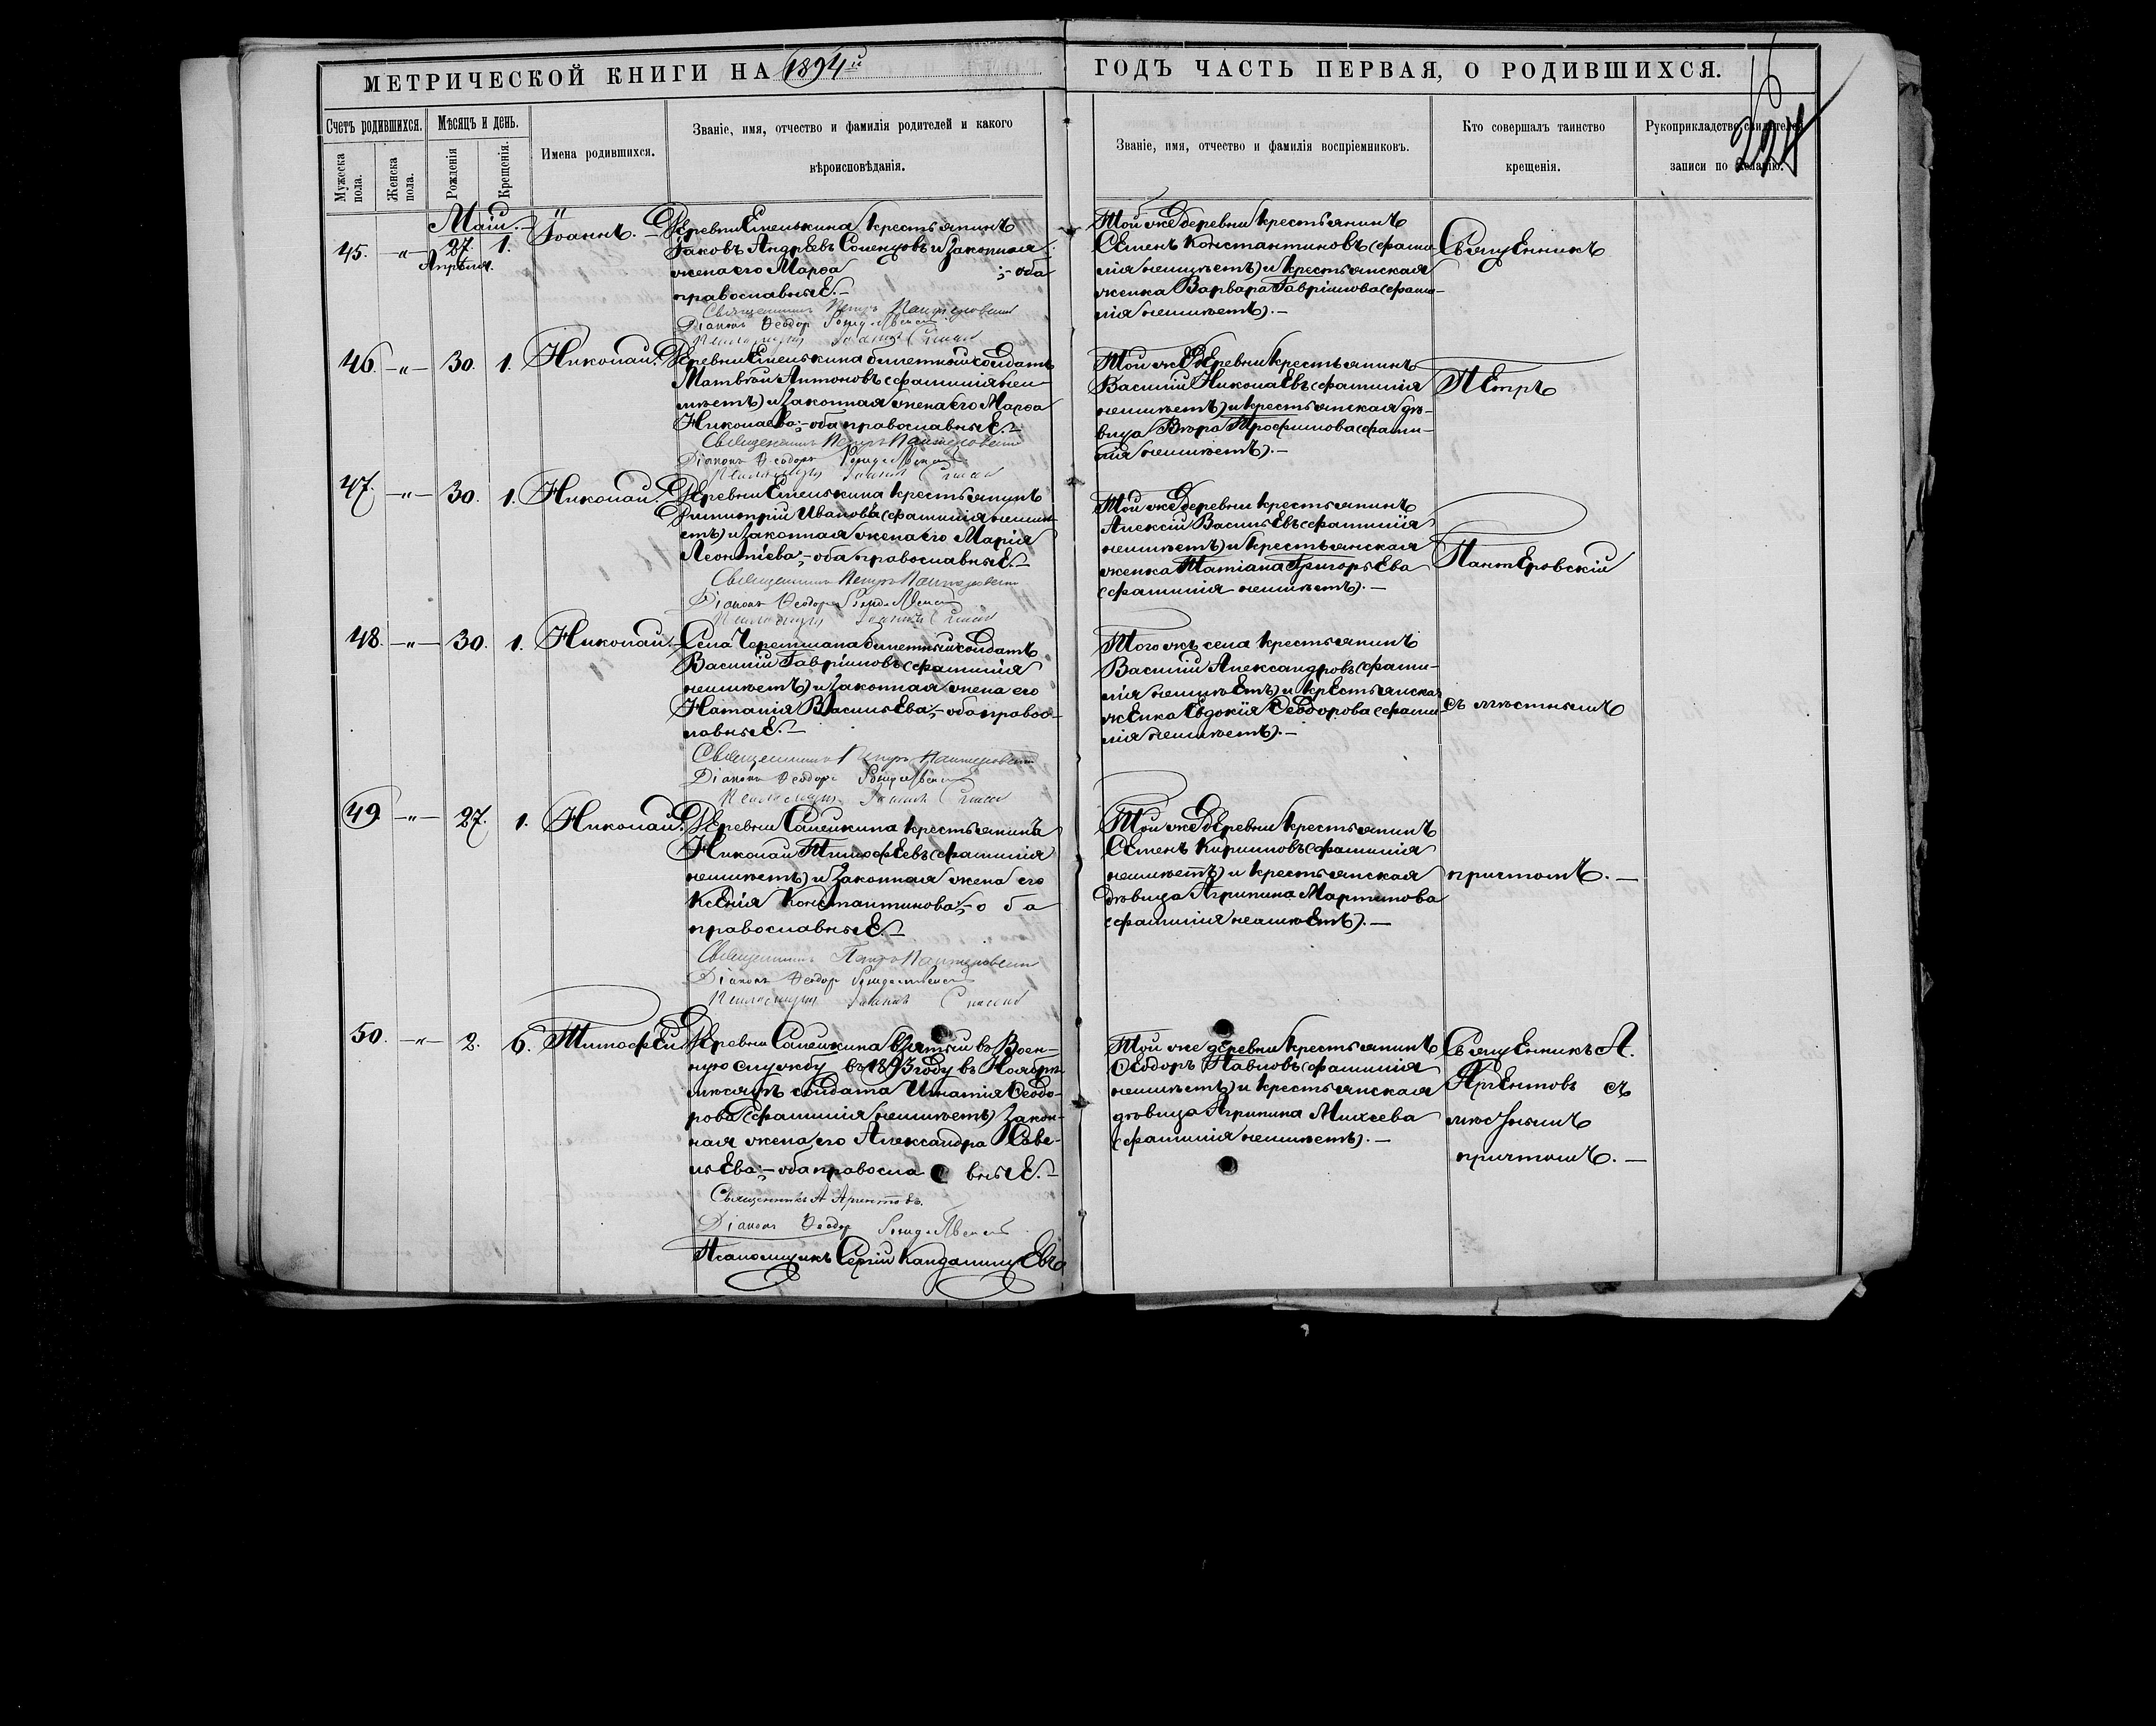 МЕТРИЧЕСКОЙ КНИГИ НА 1894й ГОДЪ ЧАСТЬ ПЕРВАЯ, О РОДИВШИХСЯ.
Счетъ родившихся.
Мѣсяцъ и день.
Мужеска пола.
Женска пола.
Рожденія
Крещенія.
Имена родившихся.
Званіе, имя, отчество и фамилія родителей и какого
вѣроисповѣданія.
Званіе, имя, отчество и фамилія воспріемниковъ.
Кто совершалъ таинство
крещенія.
Рукоприкладство свидѣтелей
записи по желанію.
Маій.
45. -"- 27. 1. Іоаннъ.
Апрѣля.
Деревни Емелькина крестьянинъ
Іаковъ Андреевъ и законная
жена его Марѳа ;- оба
православные.-
Священникъ Петръ Пантеровскій
Діаконъ Ѳеодоръ
Псаломщикъ
Той же деревни крестьянинъ
Семенъ Константиновъ (фами-
лія неимѣетъ) и крестьянская
женка Варвара Гавріилова (фами-
лія неимѣетъ).-
Священникъ
46. -"- 30. 1. Николай.
Деревни Емелькина билетный солдатъ
Матвѣй Антоновъ (фамилія неи-
мѣетъ) и законная жена его Марѳа
Николаева;- оба православные.-
Священникъ Петръ Пантеровскій
Діаконъ Ѳеодоръ
Псаломщикъ
Той же деревни крестьянинъ
Василій Николаевъ (фамилія
неимѣетъ) и крестьянская дѣ-
вица Вѣра Трофимова (фами-
лія неимѣетъ).-
Петръ
47. -"- 30. 1. Николай.
Деревни Емелькина крестьянинъ
Димитрій Ивановъ (фамилія неимѣ-
етъ) и законная жена его Марія
Леонтіева;- оба православные.-
Священникъ Петръ Пантеровскій
Діаконъ Ѳеодоръ
Псаломщикъ
Той же деревни крестьянинъ
Алексій Васильевъ (фамилія
неимѣетъ) и крестьянская
женка Татіана Григорьева
(фамилія неимѣетъ).-
Пантеровскій
48. -"- 30. 1. Николай.
Села Черемшана билетный солдатъ
Василій Гавріиловъ (фамилія
неимѣетъ) и законная жена его
Наталія Васильева;- оба правос-
лавные.-
Священникъ Петръ Пантеровскій
Діаконъ Ѳеодоръ
Псаломщикъ
Того жъ села крестьянинъ
Василій Александровъ (фами-
лія неимѣетъ) и крестьянская
женка Евдокія Ѳеодорова (фами-
лія неимѣетъ).-
съ мѣстнымъ
49. -"- 27. 1. Николай.
Деревни Савелкина крестьянинъ
Николай Тимофеевъ (фамилія
неимѣетъ) и законная жена его
Ксенія Константинова;- оба
православные.-
Священникъ Петръ Пантеровскій
Діаконъ Ѳеодоръ
Псаломщикъ
Той же деревни крестьянинъ
Семенъ Кирилловъ (фамилія
неимѣетъ) и крестьянская
дѣвица Агрипина Мартинова
(фамилія неимѣетъ).-
причтомъ.-
50. -"- 2. 6. Тимофей.
Деревни взятый въ Воен-
ную службу въ 1893 году въ Ноябрѣ
мѣсяцѣ солдата Игнатія Ѳеодо-
рова (фамилія неимѣетъ) закон-
ная жена его Александра Саве-
льева;- оба православные.-
Священникъ А Аргентовъ.
Діаконъ Ѳеодоръ
Псаломщикъ Сергій
Той же деревни крестьянинъ
Ѳеодоръ Павловъ (фамилія
неимѣетъ) и крестьянская
дѣвица Агрипина Михеева
(фамилія неимѣетъ).-
Священникъ А.
Аргентовъ съ
мѣстнымъ
причтомъ.-